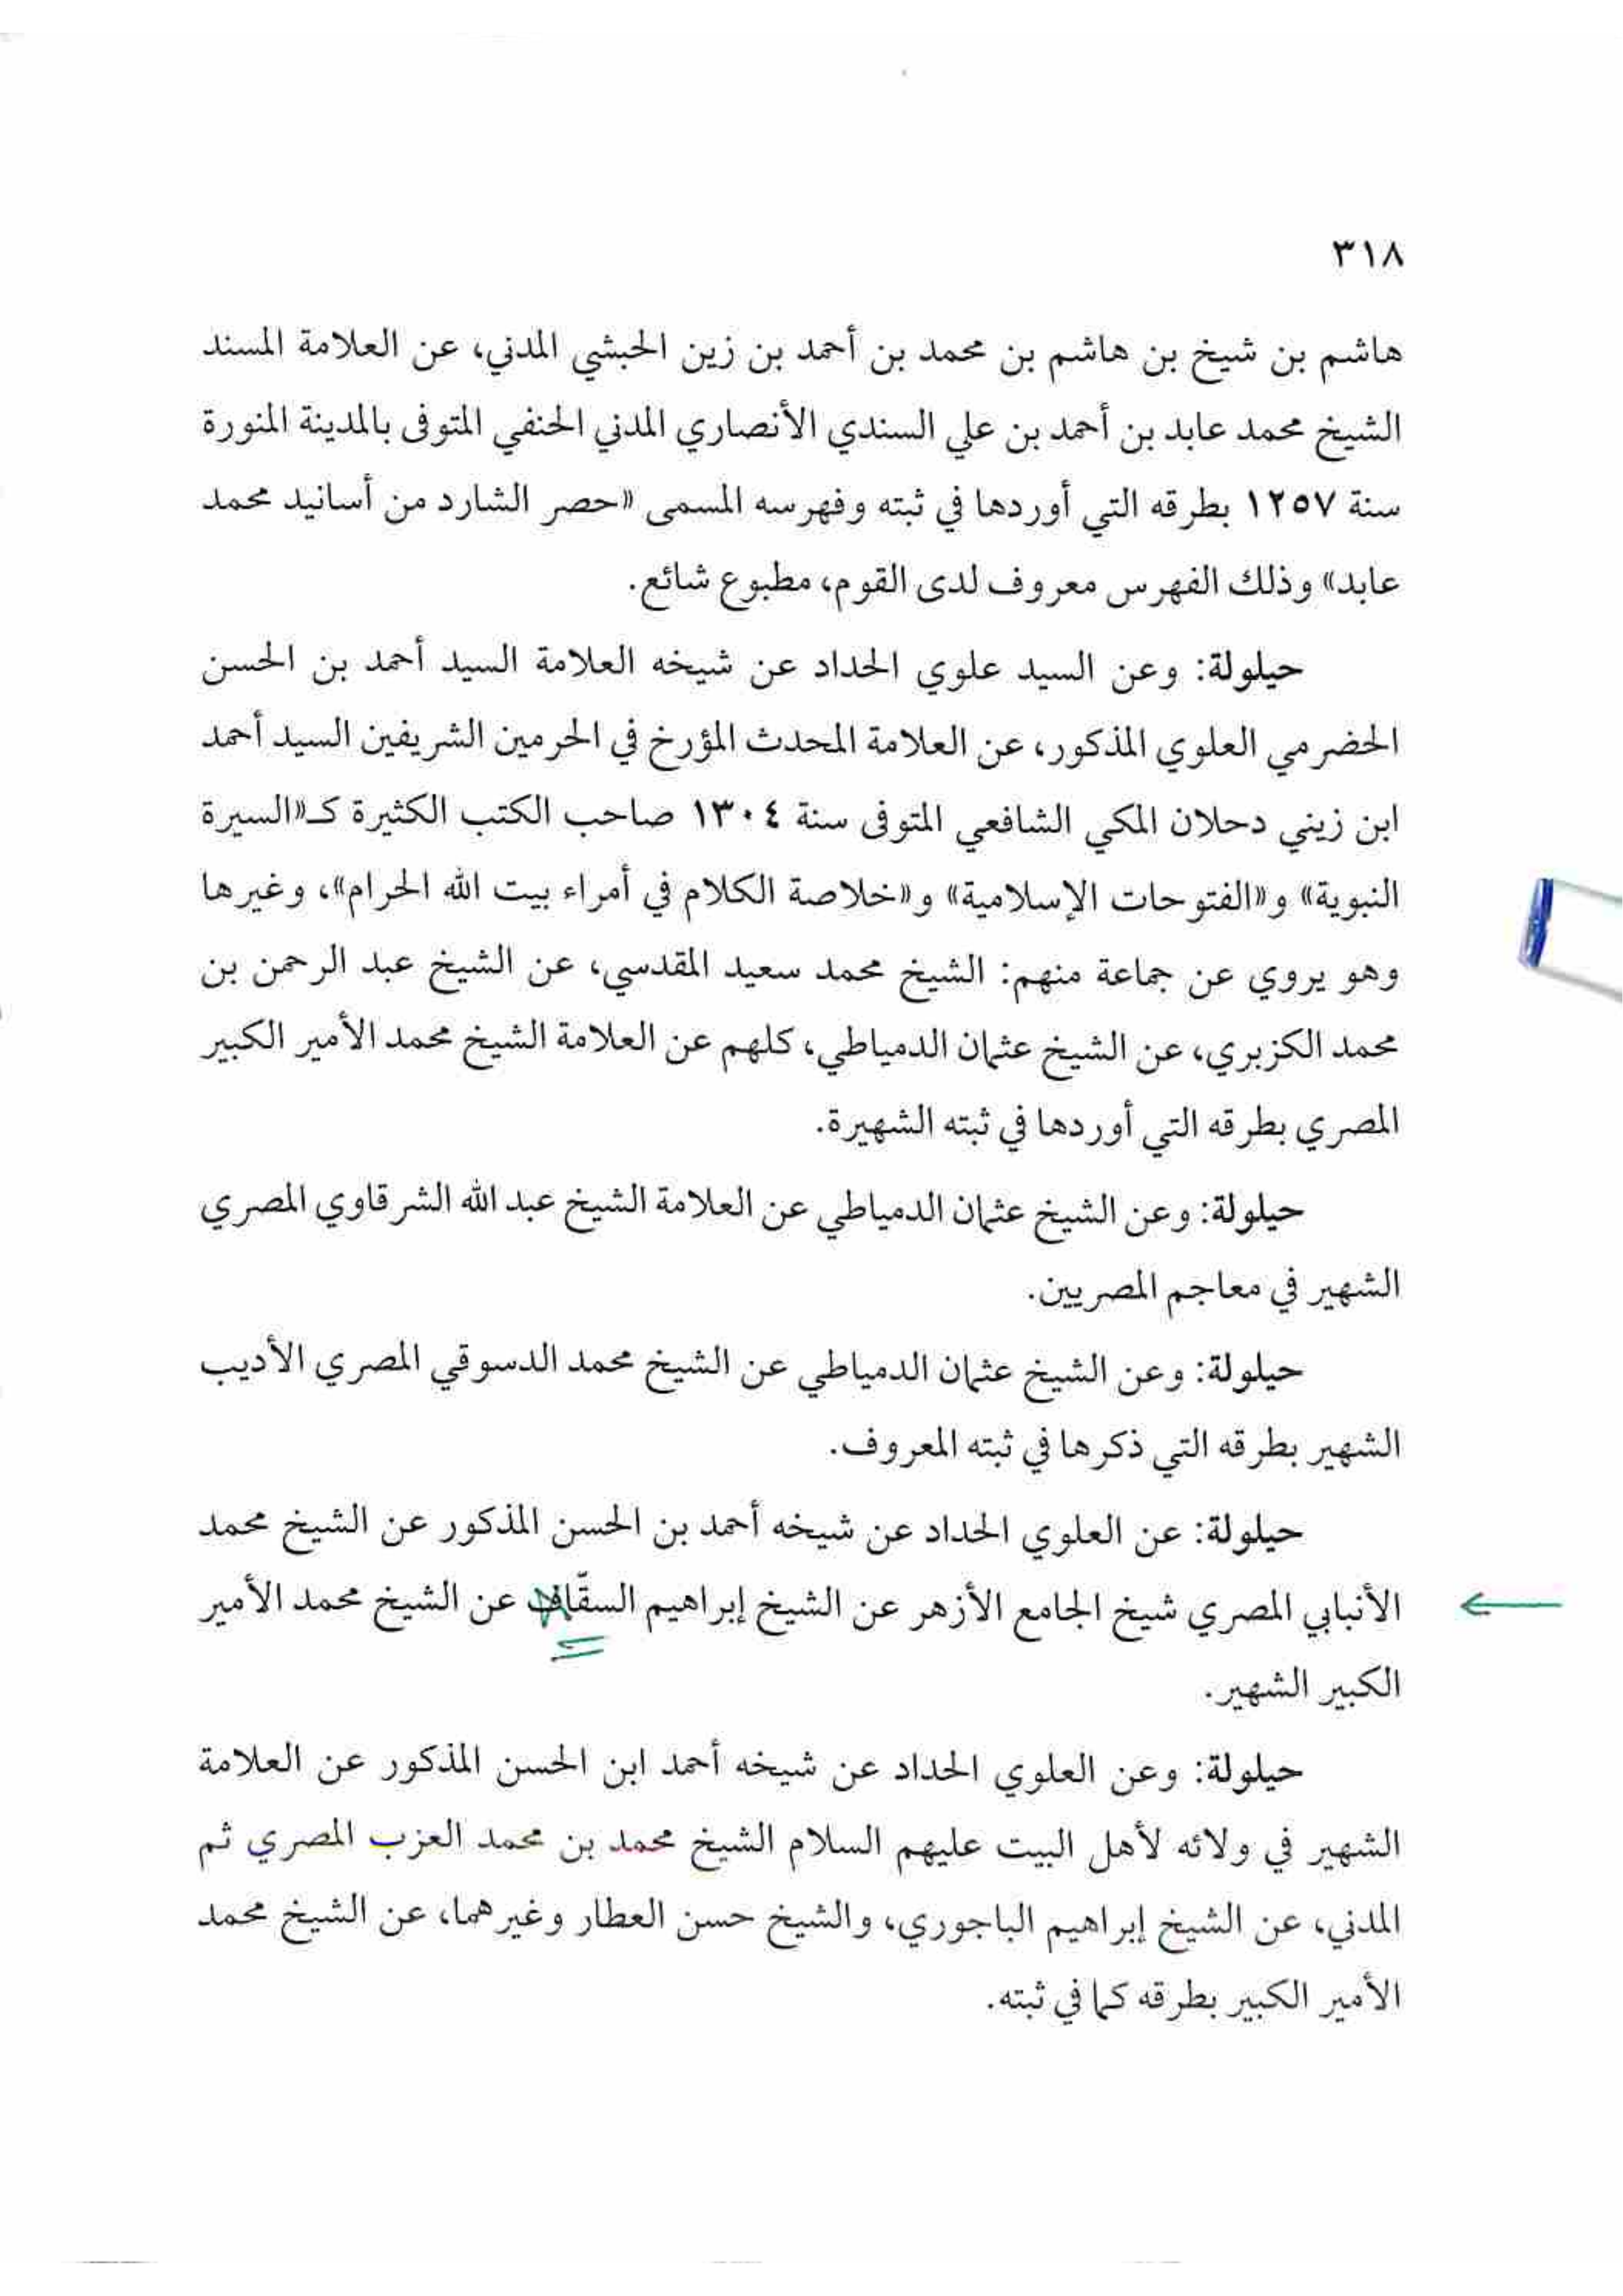 ٣١٨
هاشم بن شيخ بن هاشم بن محمد بن أحمد بن زين الحبشي المدني، عن العلامة المسند
الشيخ محمد عابد بن أحمد بن علي السندي الأنصاري المدني الحنفي المتوفى بالمدينة المنورة
سنة ١٢٥٧ بطرقه التي أوردها في ثبته وفهرسه المسمى «حصر الشارد من أسانيد محمد
عابد» وذلك الفهرس معروف لدى القوم، مطبوع شائع.
حيلولة: وعن السيد علوي الحداد عن شيخه العلامة السيد أحمد بن الحسن
الحضرمي العلوي المذكور، عن العلامة المحدث المؤرخ في الحرمين الشريفين السيد أحمد
ابن زيني دحلان المكي الشافعي المتوفى سنة ١٣٠٤ صاحب الكتب الكثيرة كـ«السيرة
النبوية» و«الفتوحات الإسلامية» و«خلاصة الكلام في أمراء بيت الله الحرام»، وغيرها
وهو يروي عن جماعة منهم: الشيخ محمد سعيد المقدسي، عن الشيخ عبد الرحمن بن
محمد الكزبري، عن الشيخ عثمان الدمياطي، كلهم عن العلامة الشيخ محمد الأمير الكبير
المصري بطرقه التي أوردها في ثبته الشهيرة.
حيلولة: وعن الشيخ عثمان الدمياطي عن العلامة الشيخ عبد الله الشرقاوي المصري
الشهير في معاجم المصريين.
حيلولة: وعن الشيخ عثمان الدمياطي عن الشيخ محمد الدسوقي المصري الأديب
الشهير بطرقه التي ذكرها في ثبته المعروف.
حيلولة: عن العلوي الحداد عن شيخه أحمد بن الحسن المذكور عن الشيخ محمد
الأنبابي المصري شيخ الجامع الأزهر عن الشيخ إبراهيم السقّاف عن الشيخ محمد الأمير
الكبير الشهير.
حيلولة: وعن العلوي الحداد عن شيخه أحمد ابن الحسن المذكور عن العلامة
الشهير في ولائه لأهل البيت عليهم السلام الشيخ محمد بن محمد العزب المصري ثم
المدني، عن الشيخ إبراهيم الباجوري، والشيخ حسن العطار وغيرهما، عن الشيخ محمد
الأمير الكبير بطرقه كما في ثبته.